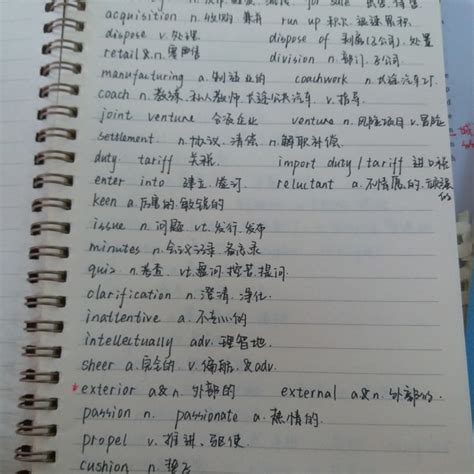 for sale 出售. 待售
acquisition n. 收购 兼并 run up 积欠. 迅速累积
dispose v. 处理 dispose of 剥离(子公司). 处置
retail & n. 零售 division n. 部门. 子公司
manufacturing a. 制造业的 coachwork n. 长途汽车厂
coach n. 教练. 私人教师. 长途公共汽车 v. 指导.
joint venture 合资企业 venture n. 风险项目 v. 冒险
settlement n. 协议. 清偿 n. 解职补偿
duty tariff 关税 import duty / tariff 进口税
enter into 建立. 签订 reluctant a. 不情愿的. 的
keen a. 厉害的. 敏锐的
issue n. 问题 vt. 发行. 发布
minutes n. 会议记录. 备忘录
quiz n. 考查 vt. 盘问. 挖苦. 提问.
clarification n. 澄清. 净化.
inattentive a. 不专心的
intellectually adv. 理智地.
sheer a. 完全的 v. 偏航. & adv.
* exterior a & n. 外部的 external a & n. 外部的.
passion n. passionate a. 热情的.
propel v. 推进. 驱使.
cushion n. 垫子